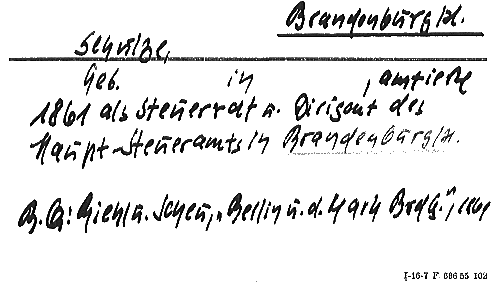 Brandenburg/H.
Schulze,
Geb. in , amtierte
1861 als Steuerrat u. Dirigent des
Haupt-Steueramts in Brandenburg/H.
B.Q.: Riehl u. Scheu, "Berlin u. d. Mark Brdbg.", 1861
I-16-7 F 686 55 102